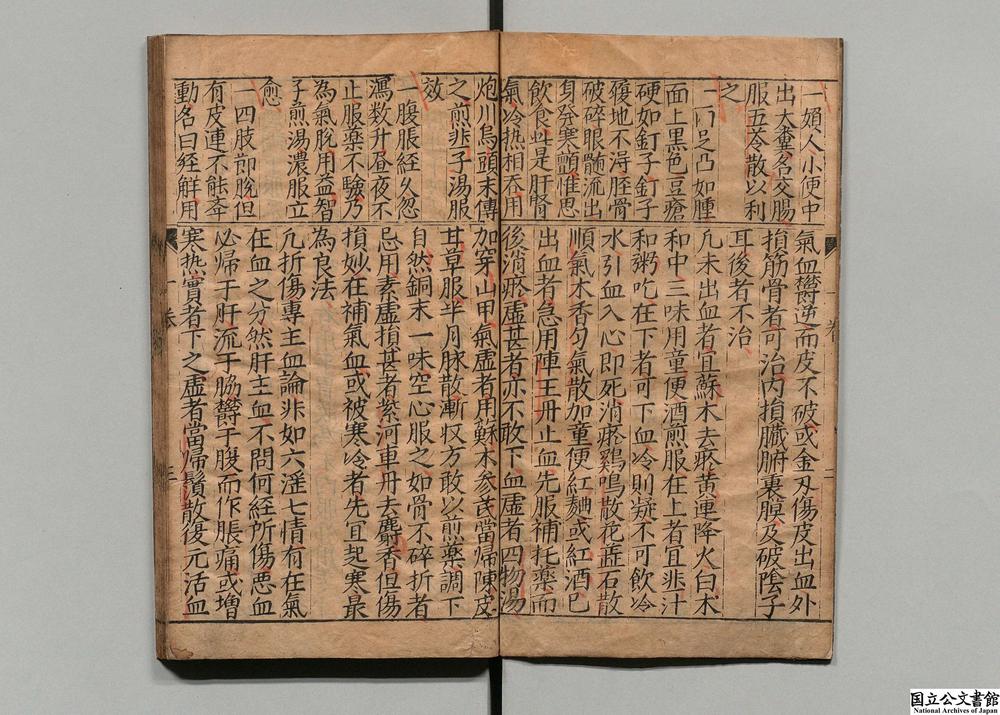 一婦人小便中
出大糞名交腸
服五苓散以利
之
一行足凸如腫
面上黑色豆瘡
硬如釘子釘子
履地不得脛骨
破碎眼髓流出
身發寒顫惟思
飲食此是肝腎
氣冷热相吞用
氣血欝逆而皮不破或金刃傷皮出血外
損筋骨者可治內損臟腑裏膜及破陰子
耳後者不治
凡未出血者宜蘇木去瘀黄連降火白术
和中三味用童便酒煎服在上者宜韭汁
和粥吃在下者可下血冷則凝不可飲冷
水引血入心即死消瘀鷄鳴散花蕋石散
順氣木香勻氣散加童便紅麯或紅酒已
出血者急用陣王丹止血先服補托藥而
後消瘀虛甚者亦不敢下血虛者四物湯
炮川烏頭末傳
之煎韭子湯服
效
一腹脹經久忽
瀉数升昼夜不
止服藥不驗乃
為氣脫用益智
子煎湯濃服立
愈
一四肢節脫但
有皮連不能举
動名曰經解用
加穿山甲氣虛者用蘇木參芪當帰陳皮
甘草服半月脉散漸收方敢以煎藥調下
自然銅末一味空心服之如骨不碎折者
忌用素虛損甚者紫河車丹去麝香但傷
損妙在補氣血或被寒冷者先宜起寒最
為良法
凡折傷專主血論非如六淫七情有在氣
在血之分然肝主血不問何經所傷惡血
必帰于肝流于脇欝于腹而作脹痛或增
寒热實者下之虛者當帰鬚散復元活血
国立公文書館
National Archives of Japan